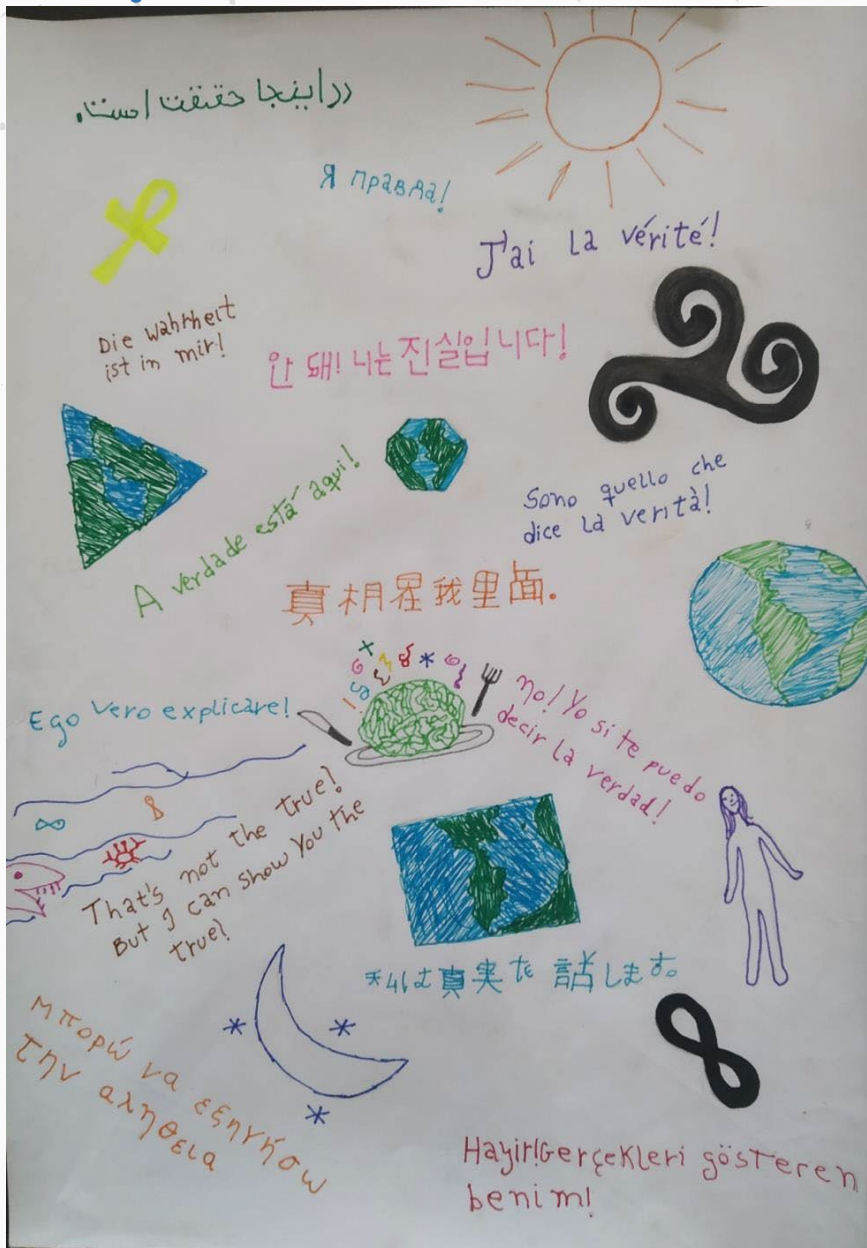 در اینجا حقیقت است.
Я правда!
J'ai la vérité!
Die wahrheit
ist in mir!
안 돼! 나는 진실입니다!
A verdade está aqui!
Sono quello che
dice la verità!
真相是我里面.
Ego vero explicare!
no! Yo si te puedo
decir la verdad!
That's not the true?
But I can show You the
true?
私は真実を話します。
Μπορώ να εξηγήσω
την αληθεια
Hayir!Gerçekleri gösteren
benim!